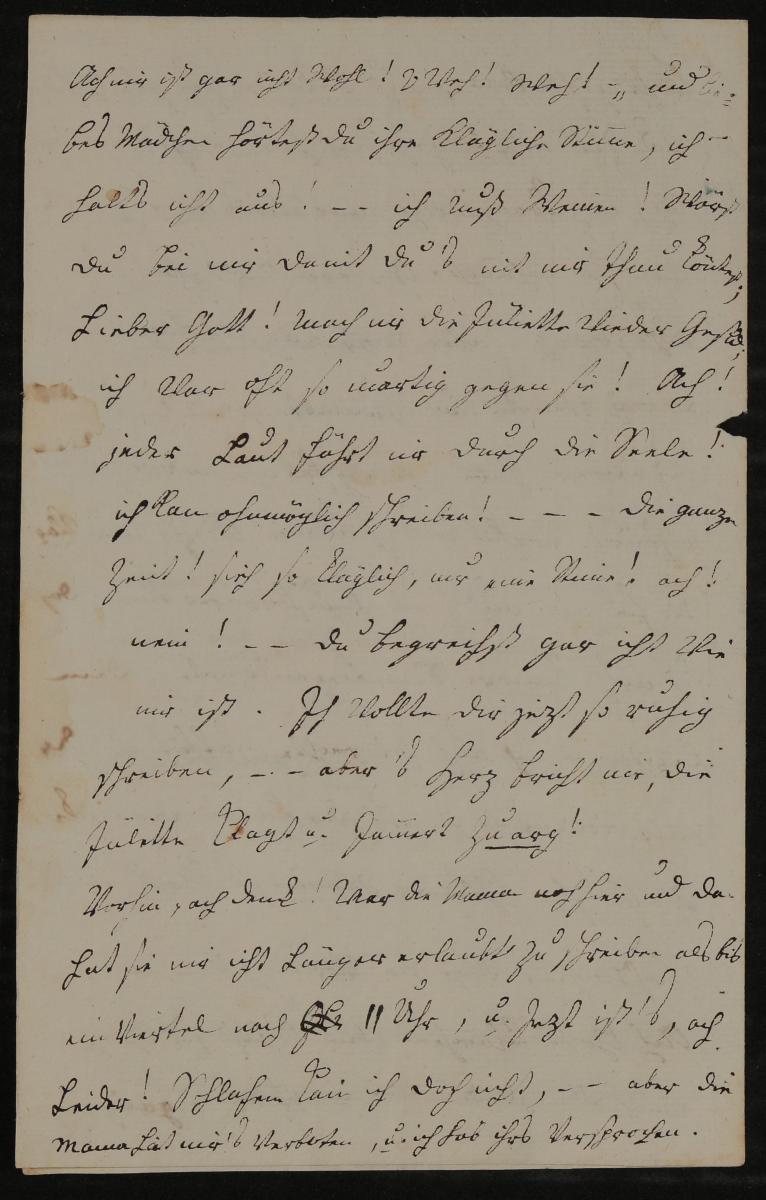 Ach mir ist gar nicht Wohl! O Weh! Weh! -„ und lie-
bes Mädchen hörtest du ihre Klägliche Stime, ich -
halts icht aus! -- ich muß Weinen! Wärst
du bei mir damit du's mit mir thun köntest,
Lieber Gott! mach mir die Juliette Wieder Gesund,
ich War oft so unartig gegen sie! Ach!
jeder Laut fährt mir durch die Seele!
ich kan ohnmöglich schreiben! - - - die ganze
Zeit! so kläglich, nur eine Stime! ach!
nein! -- du begreifst gar icht Wie
mir ist. Ich Wollte dir jezt so ruhig
schreiben, -.- aber's Herz bricht mir, die
Juliette Klagt u. Jamert zu arg!
Vorhin, ach denk! War die Mama noch hier und da
hat sie mir icht Länger erlaubt zu schreiben als bis
ein Viertel nach 11 Uhr, u. Jezt ist's, ach
Leider! Schlafen kan ich doch nicht, -- aber die
Mama hat mir's Verboten, u. ich hab ihrs Versprochen.